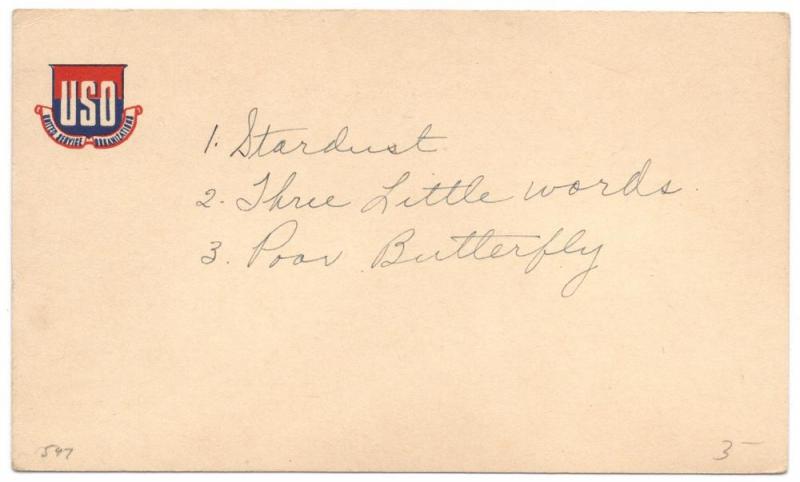 USO
UNITED SERVICE ORGANIZATIONS
1. Stardust
2. Three Little words.
3. Poor Butterfly
547
3-